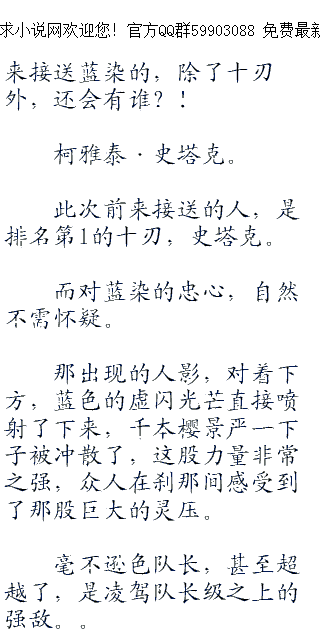 求小说网欢迎您！官方QQ群59903088 免费最新
来接送蓝染的，除了十刃
外，还会有谁？！
柯雅泰·史塔克。
此次前来接送的人，是
排名第1的十刃，史塔克。
而对蓝染的忠心，自然
不需怀疑。
那出现的人影，对着下
方，蓝色的虚闪光芒直接喷
射了下来，千本樱景严一下
子被冲散了，这股力量非常
之强，众人在刹那间感受到
了那股巨大的灵压。
毫不逊色队长，甚至超
越了，是凌驾队长级之上的
强敌。。